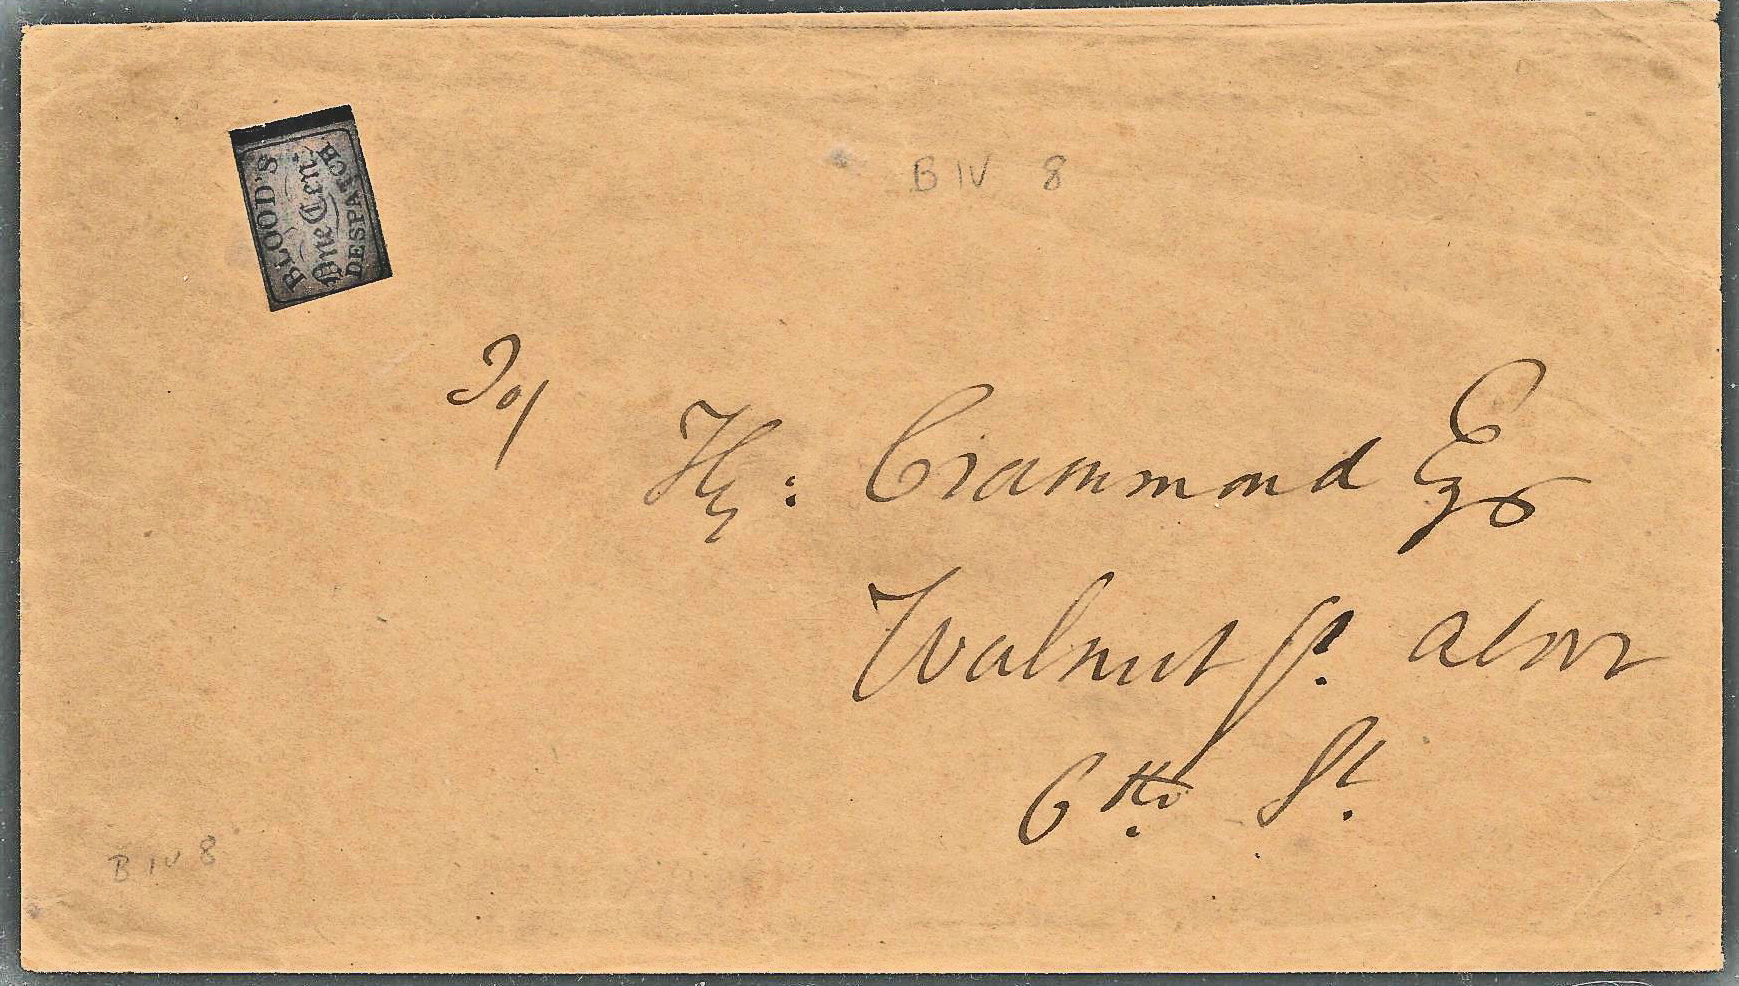 BLOOD'S
One Cent.
DESPATCH
B IV 8
To/
Hy: Crammond Esq
Walnut St. above
6th St.
B IV 8